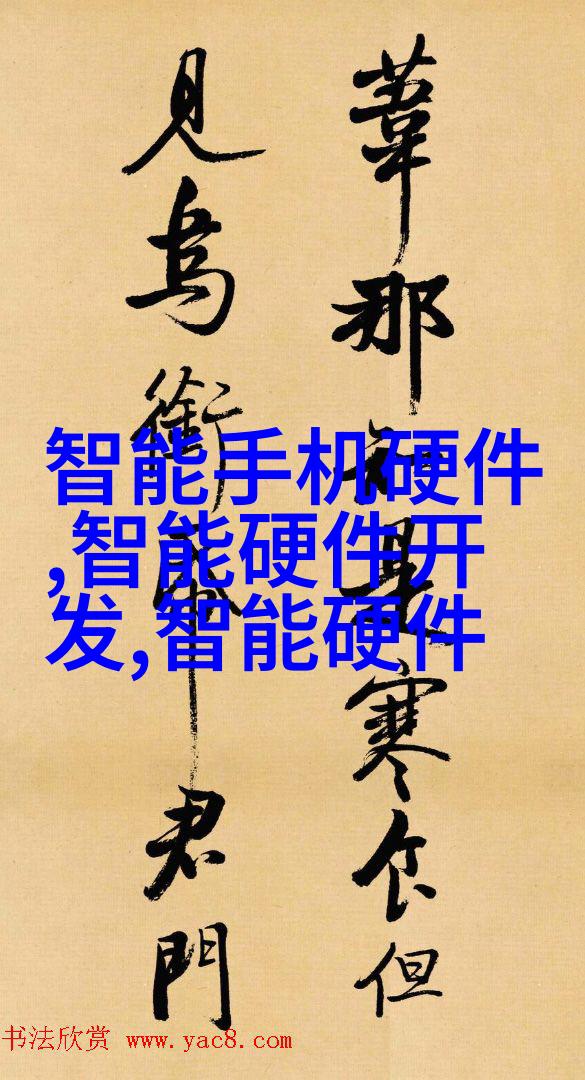 葦那知是寒食但
見烏銜帋君門
智能手机硬件
,智能硬件开
发,智能硬件
书法欣赏 www.yac8.com